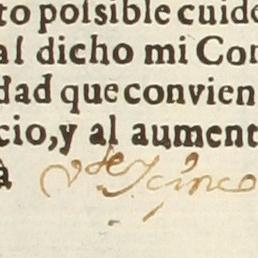 to poſsible cuide
al dicho mi Con
dad que convien
cio, y al aument
à
de
y cinco